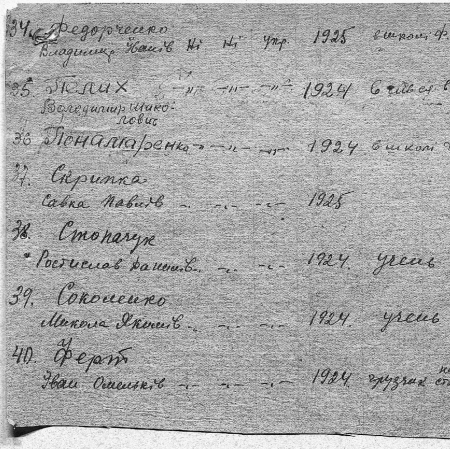 34. Федорченко
Владимир Іванів Ні Ні укр. 1925 в школі Ф
35 Телих -"- -"- -"- 1924
Володимир Мико-
лович
36 Понамаренко -"- -"- -"- 1924 в школі
37. Скрипка
Савка Павлів -"- -"- -"- 1925
38. Стопачук
Ростислав -"- -"- -"- 1924. учень
39. Соколенко
Микола Якимів -"- -"- -"- 1924. учень
40. Ферт
Іван Омельків -"- -"- -"- 1924. грузчик